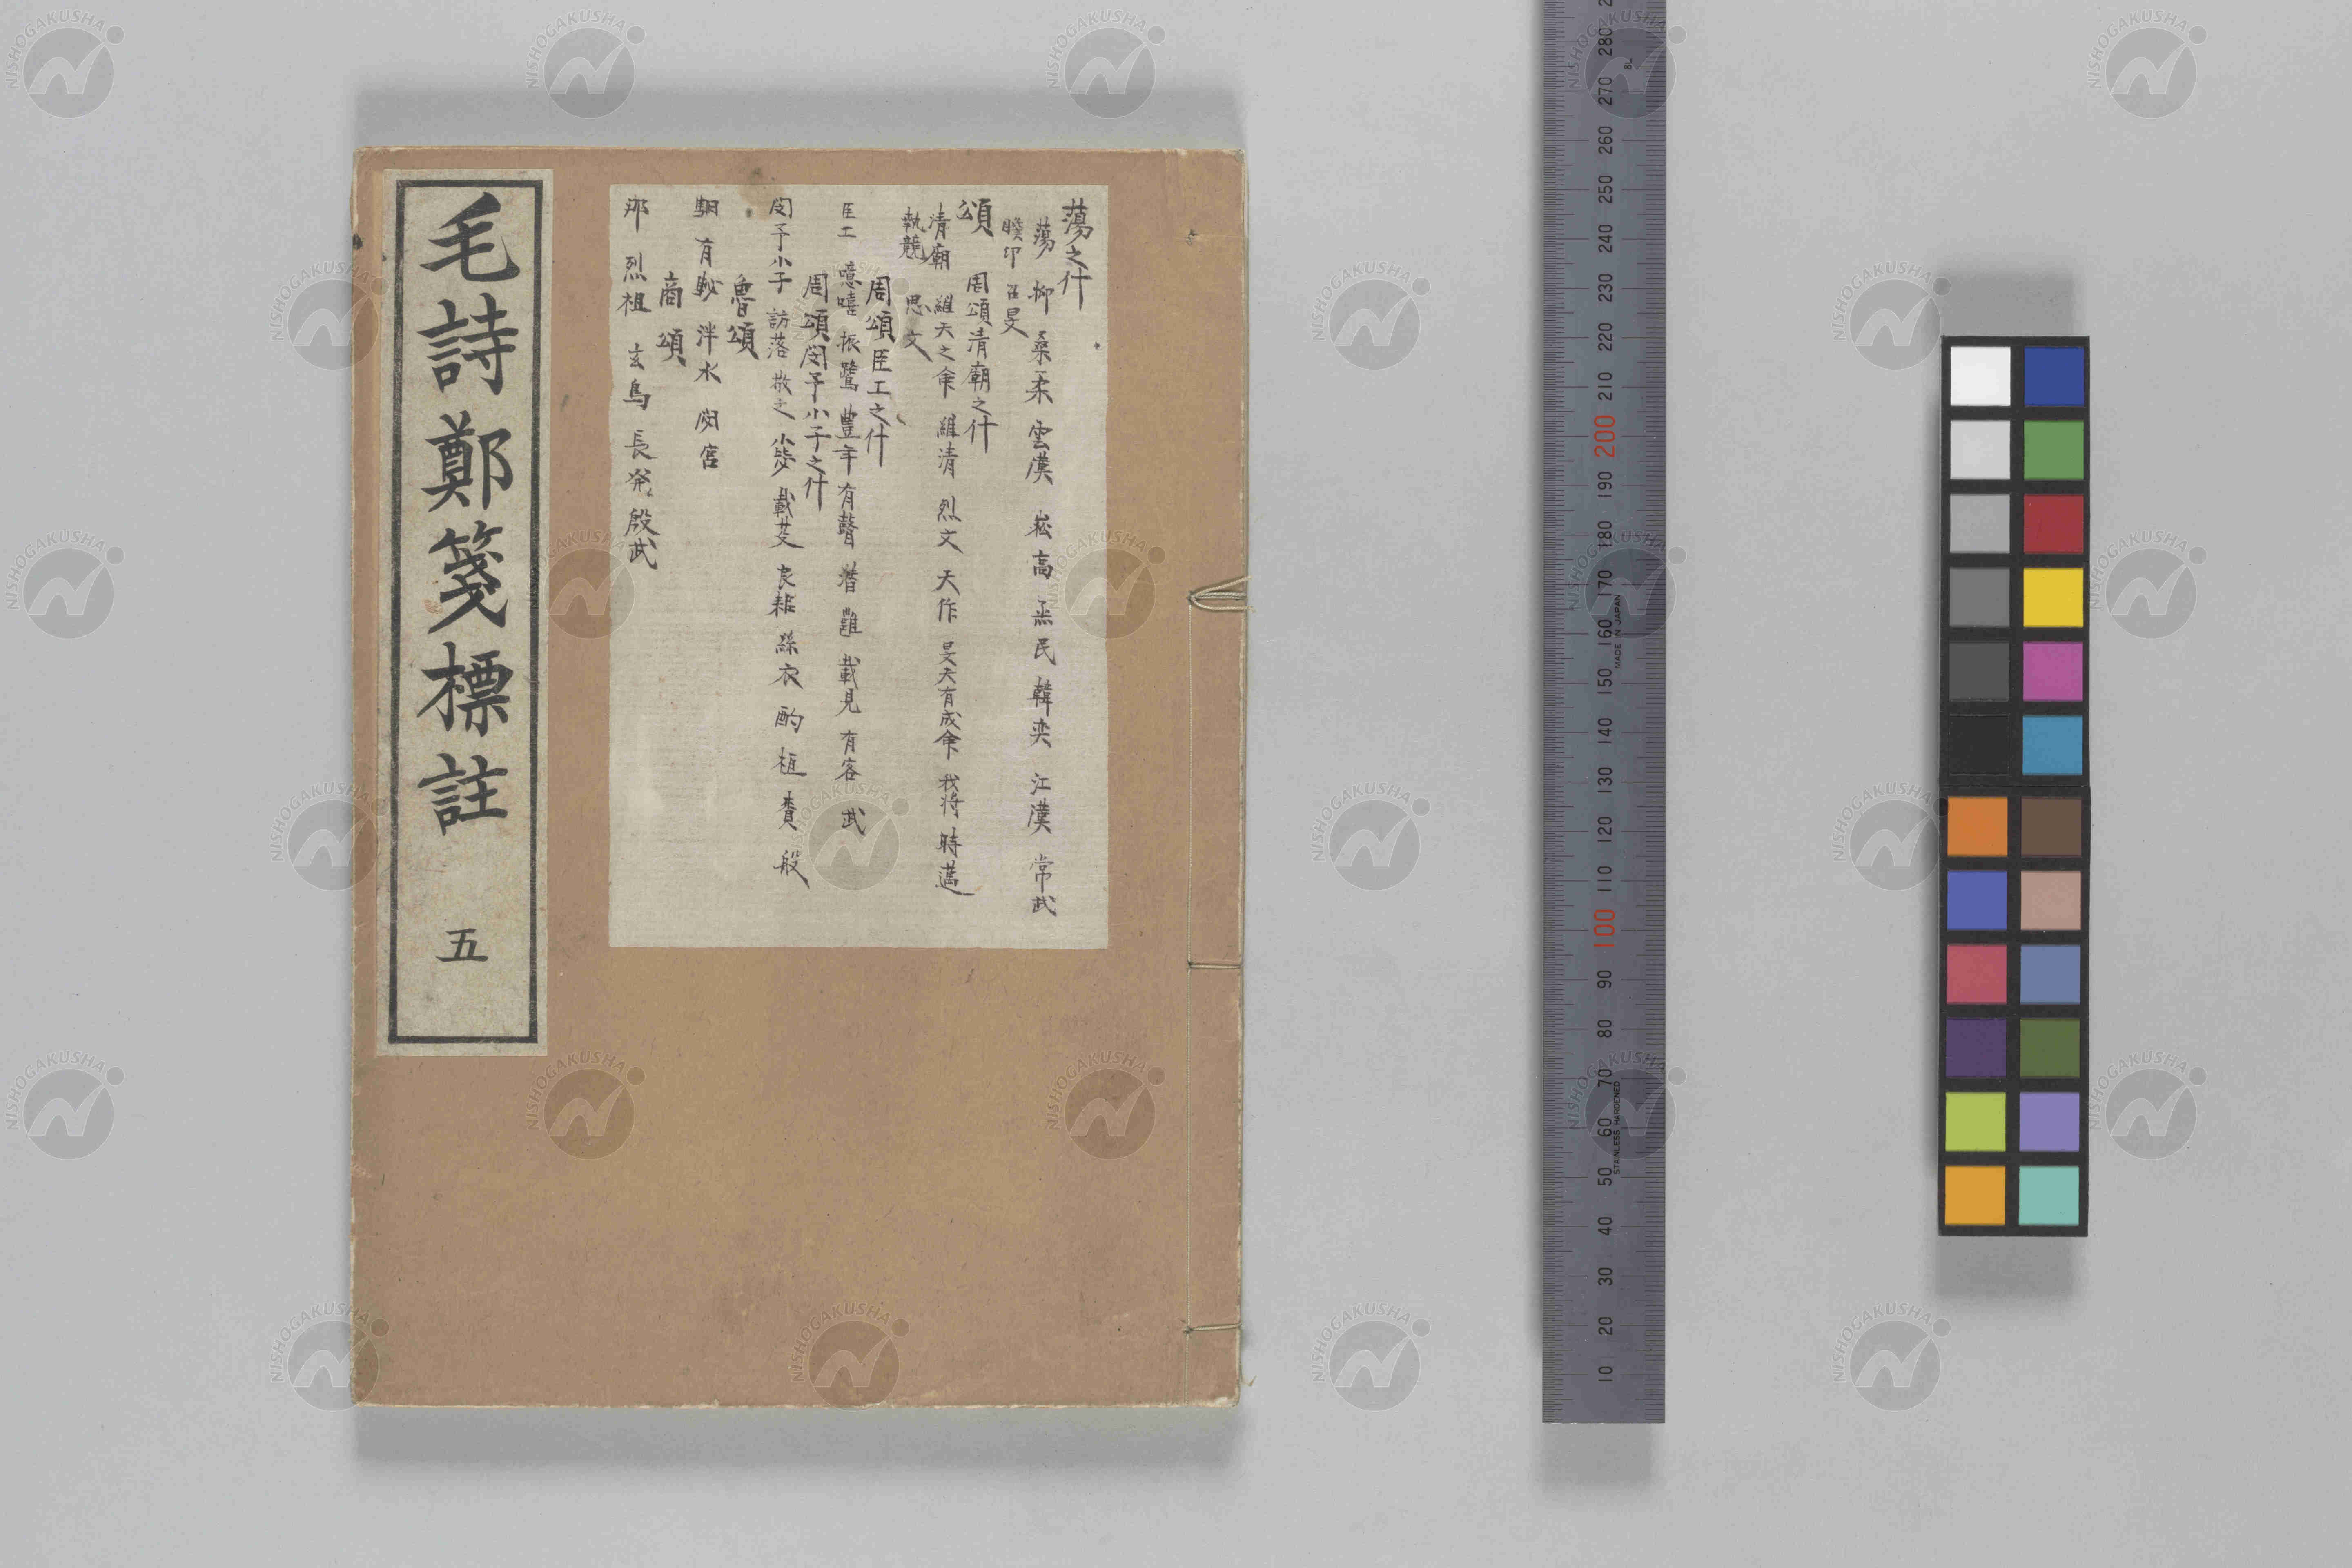 蕩之什
蕩 抑 桑柔 雲漢 崧高 烝民 韓奕 江漢 常武
瞻卬 召旻
頌 周頌清廟之什
清廟 維天之命 維清 烈文 天作 昊天有成命 我将 時邁
執競 思文
周頌臣工之什
臣工 噫嘻 振鷺 豊年 有瞽 潜 雝 載見 有客 武
周頌閔予小子之什
閔予小子 訪落 敬之 小毖 載芟 良耜 絲衣 酌 桓 賚 般
魯頌
駉 有駜 泮水 閟宮
商頌
那 烈祖 玄鳥 長発 殷武
毛詩鄭箋標註 五
280
270
260
250
240
230
220
210
200
190
180
170
160
150
140
130
120
110
100
90
80
70
60
50
40
30
20
10
MADE IN JAPAN
STAINLESS HARDENED
NISHOGAKUSHA